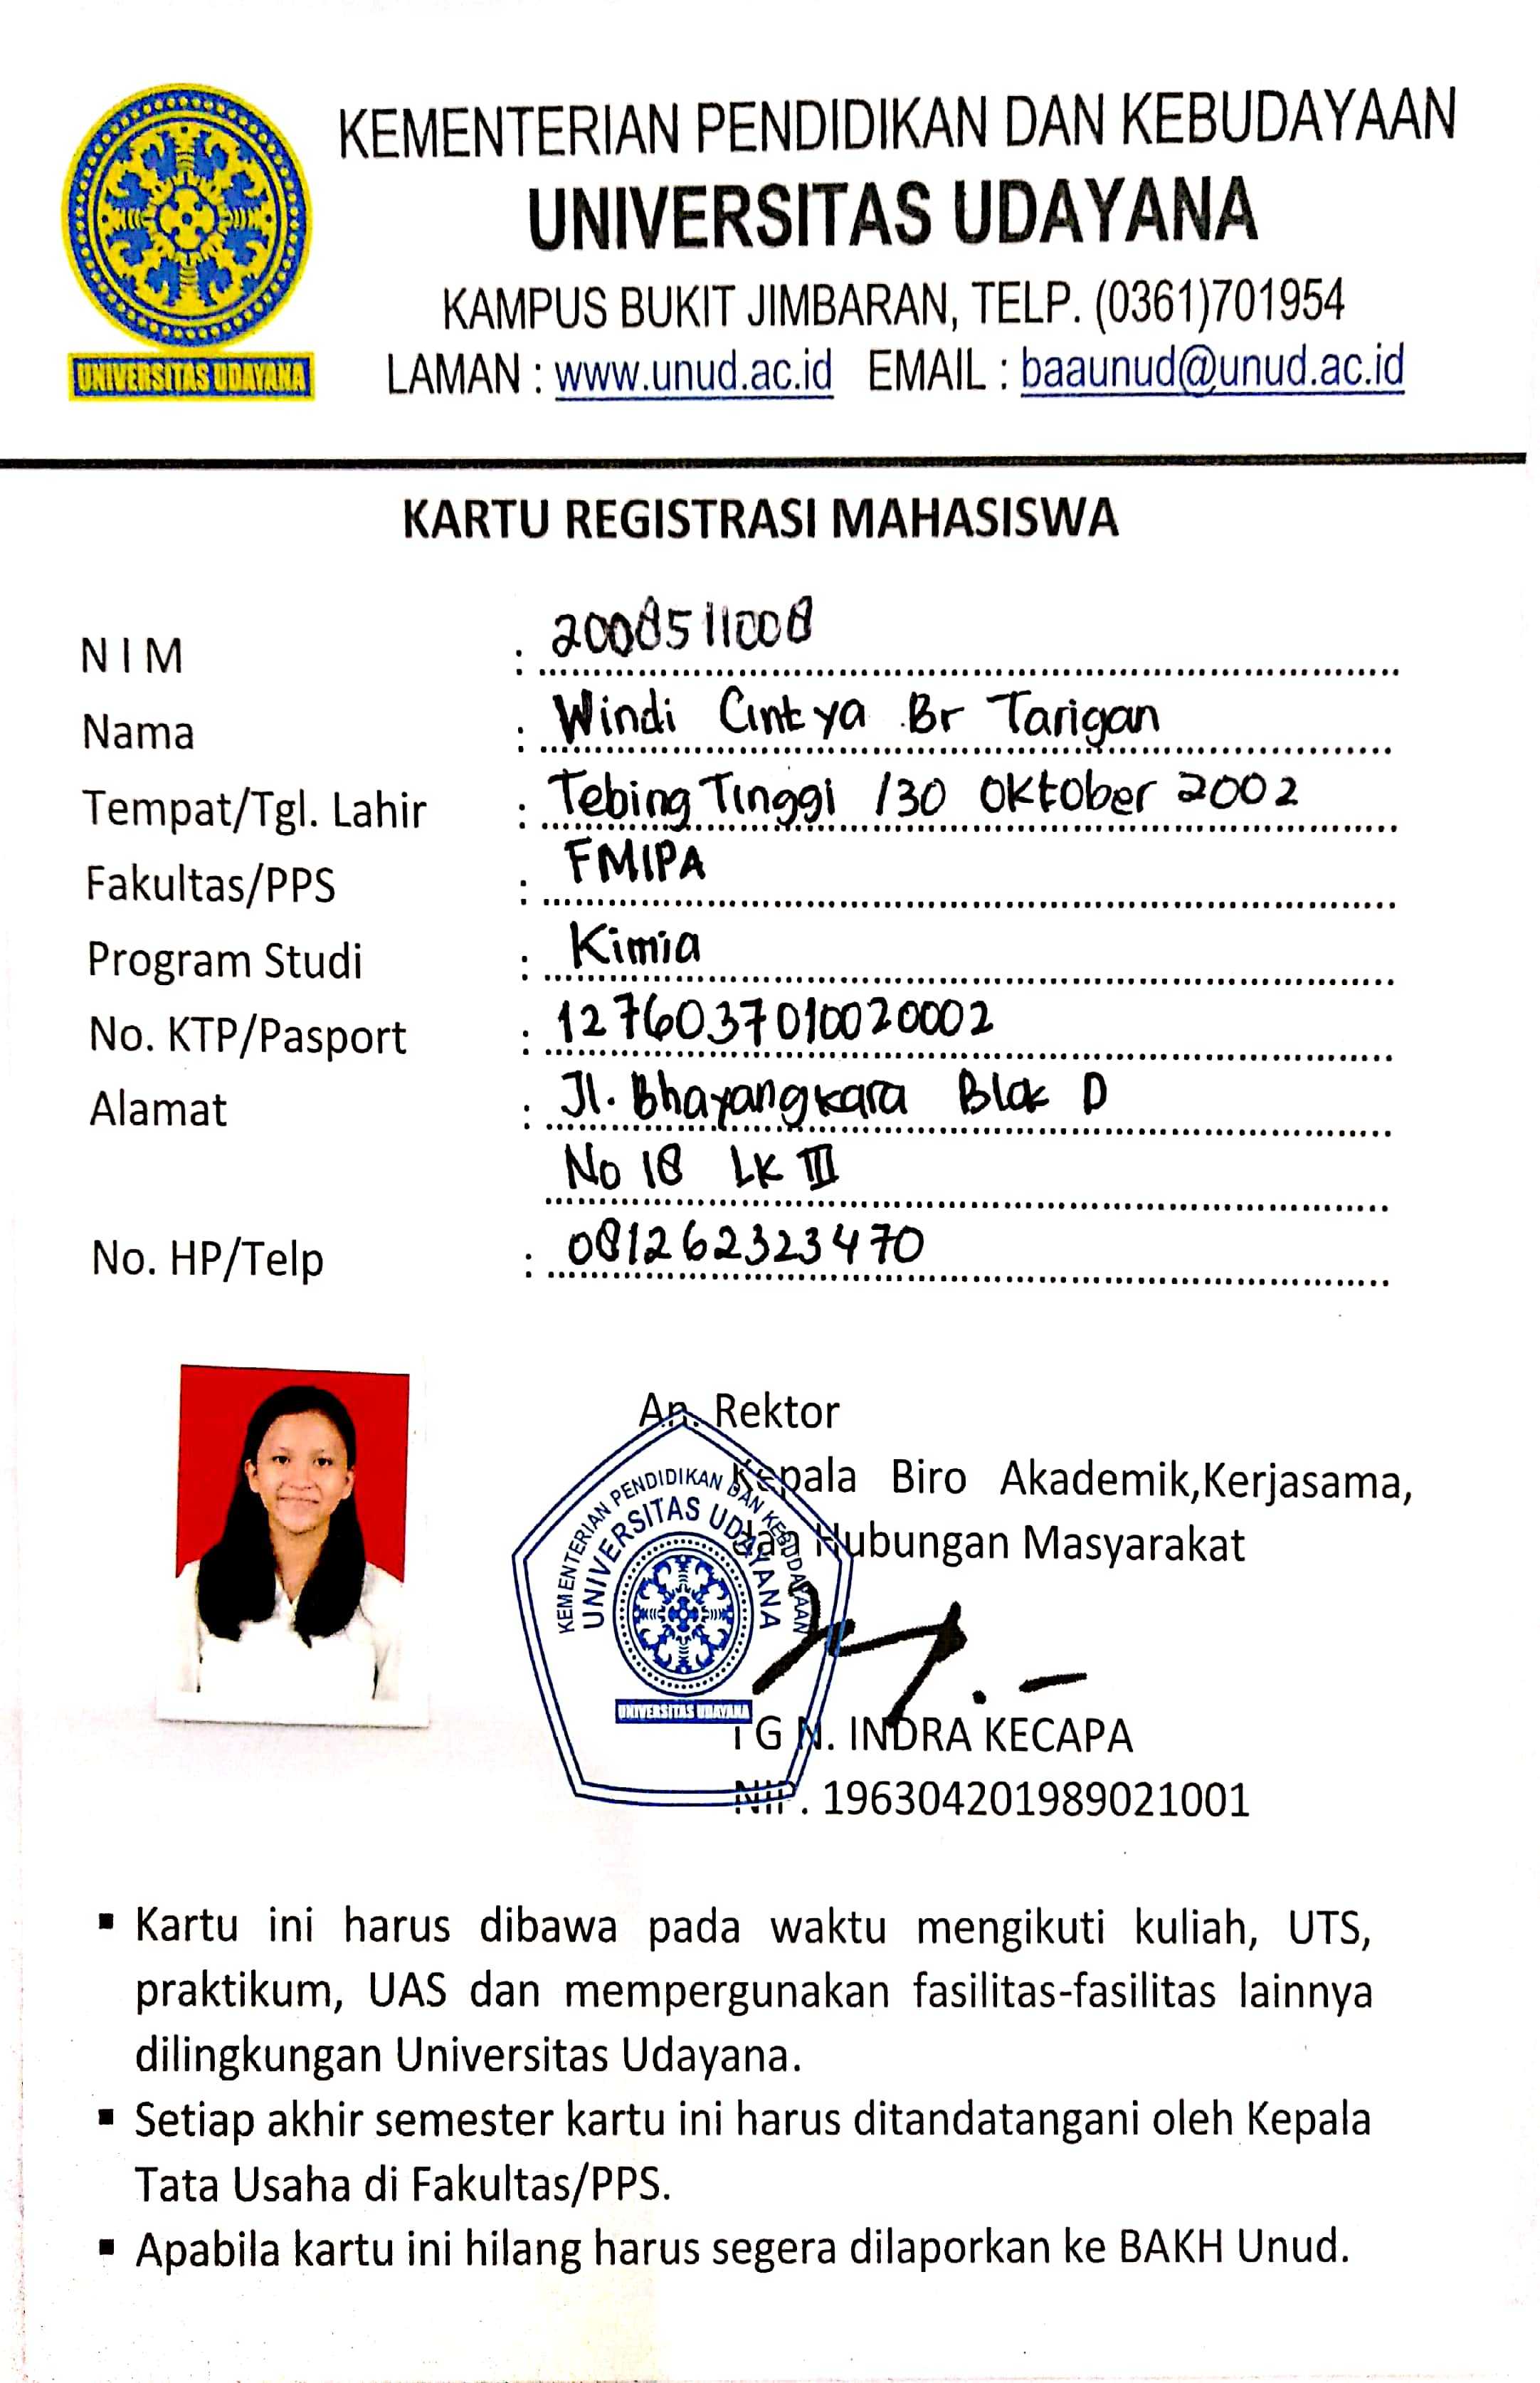 KEMENTERIAN PENDIDIKAN DAN KEBUDAYAAN
UNIVERSITAS UDAYANA
KAMPUS BUKIT JIMBARAN, TELP. (0361)701954
LAMAN : www.unud.ac.id EMAIL : baaunud@unud.ac.id
UNIVERSITAS UDAYANA
KARTU REGISTRASI MAHASISWA
N I M : 2008511008
Nama : Windi Cintya Br Tarigan
Tempat/Tgl. Lahir : Tebing Tinggi /30 Oktober 2002
Fakultas/PPS : FMIPA
Program Studi : Kimia
No. KTP/Pasport : 1276037010020002
Alamat : Jl. Bhayangkara Blok D
No 18 LK III
No. HP/Telp : 081262323470
An. Rektor
Kepala Biro Akademik,Kerjasama,
dan Hubungan Masyarakat
KEMENTERIAN PENDIDIKAN DAN KEBUDAYAAN
UNIVERSITAS UDAYANA
UNIVERSITAS UDAYANA
I G N. INDRA KECAPA
NIP. 196304201989021001
▪ Kartu ini harus dibawa pada waktu mengikuti kuliah, UTS,
praktikum, UAS dan mempergunakan fasilitas-fasilitas lainnya
dilingkungan Universitas Udayana.
▪ Setiap akhir semester kartu ini harus ditandatangani oleh Kepala
Tata Usaha di Fakultas/PPS.
▪ Apabila kartu ini hilang harus segera dilaporkan ke BAKH Unud.